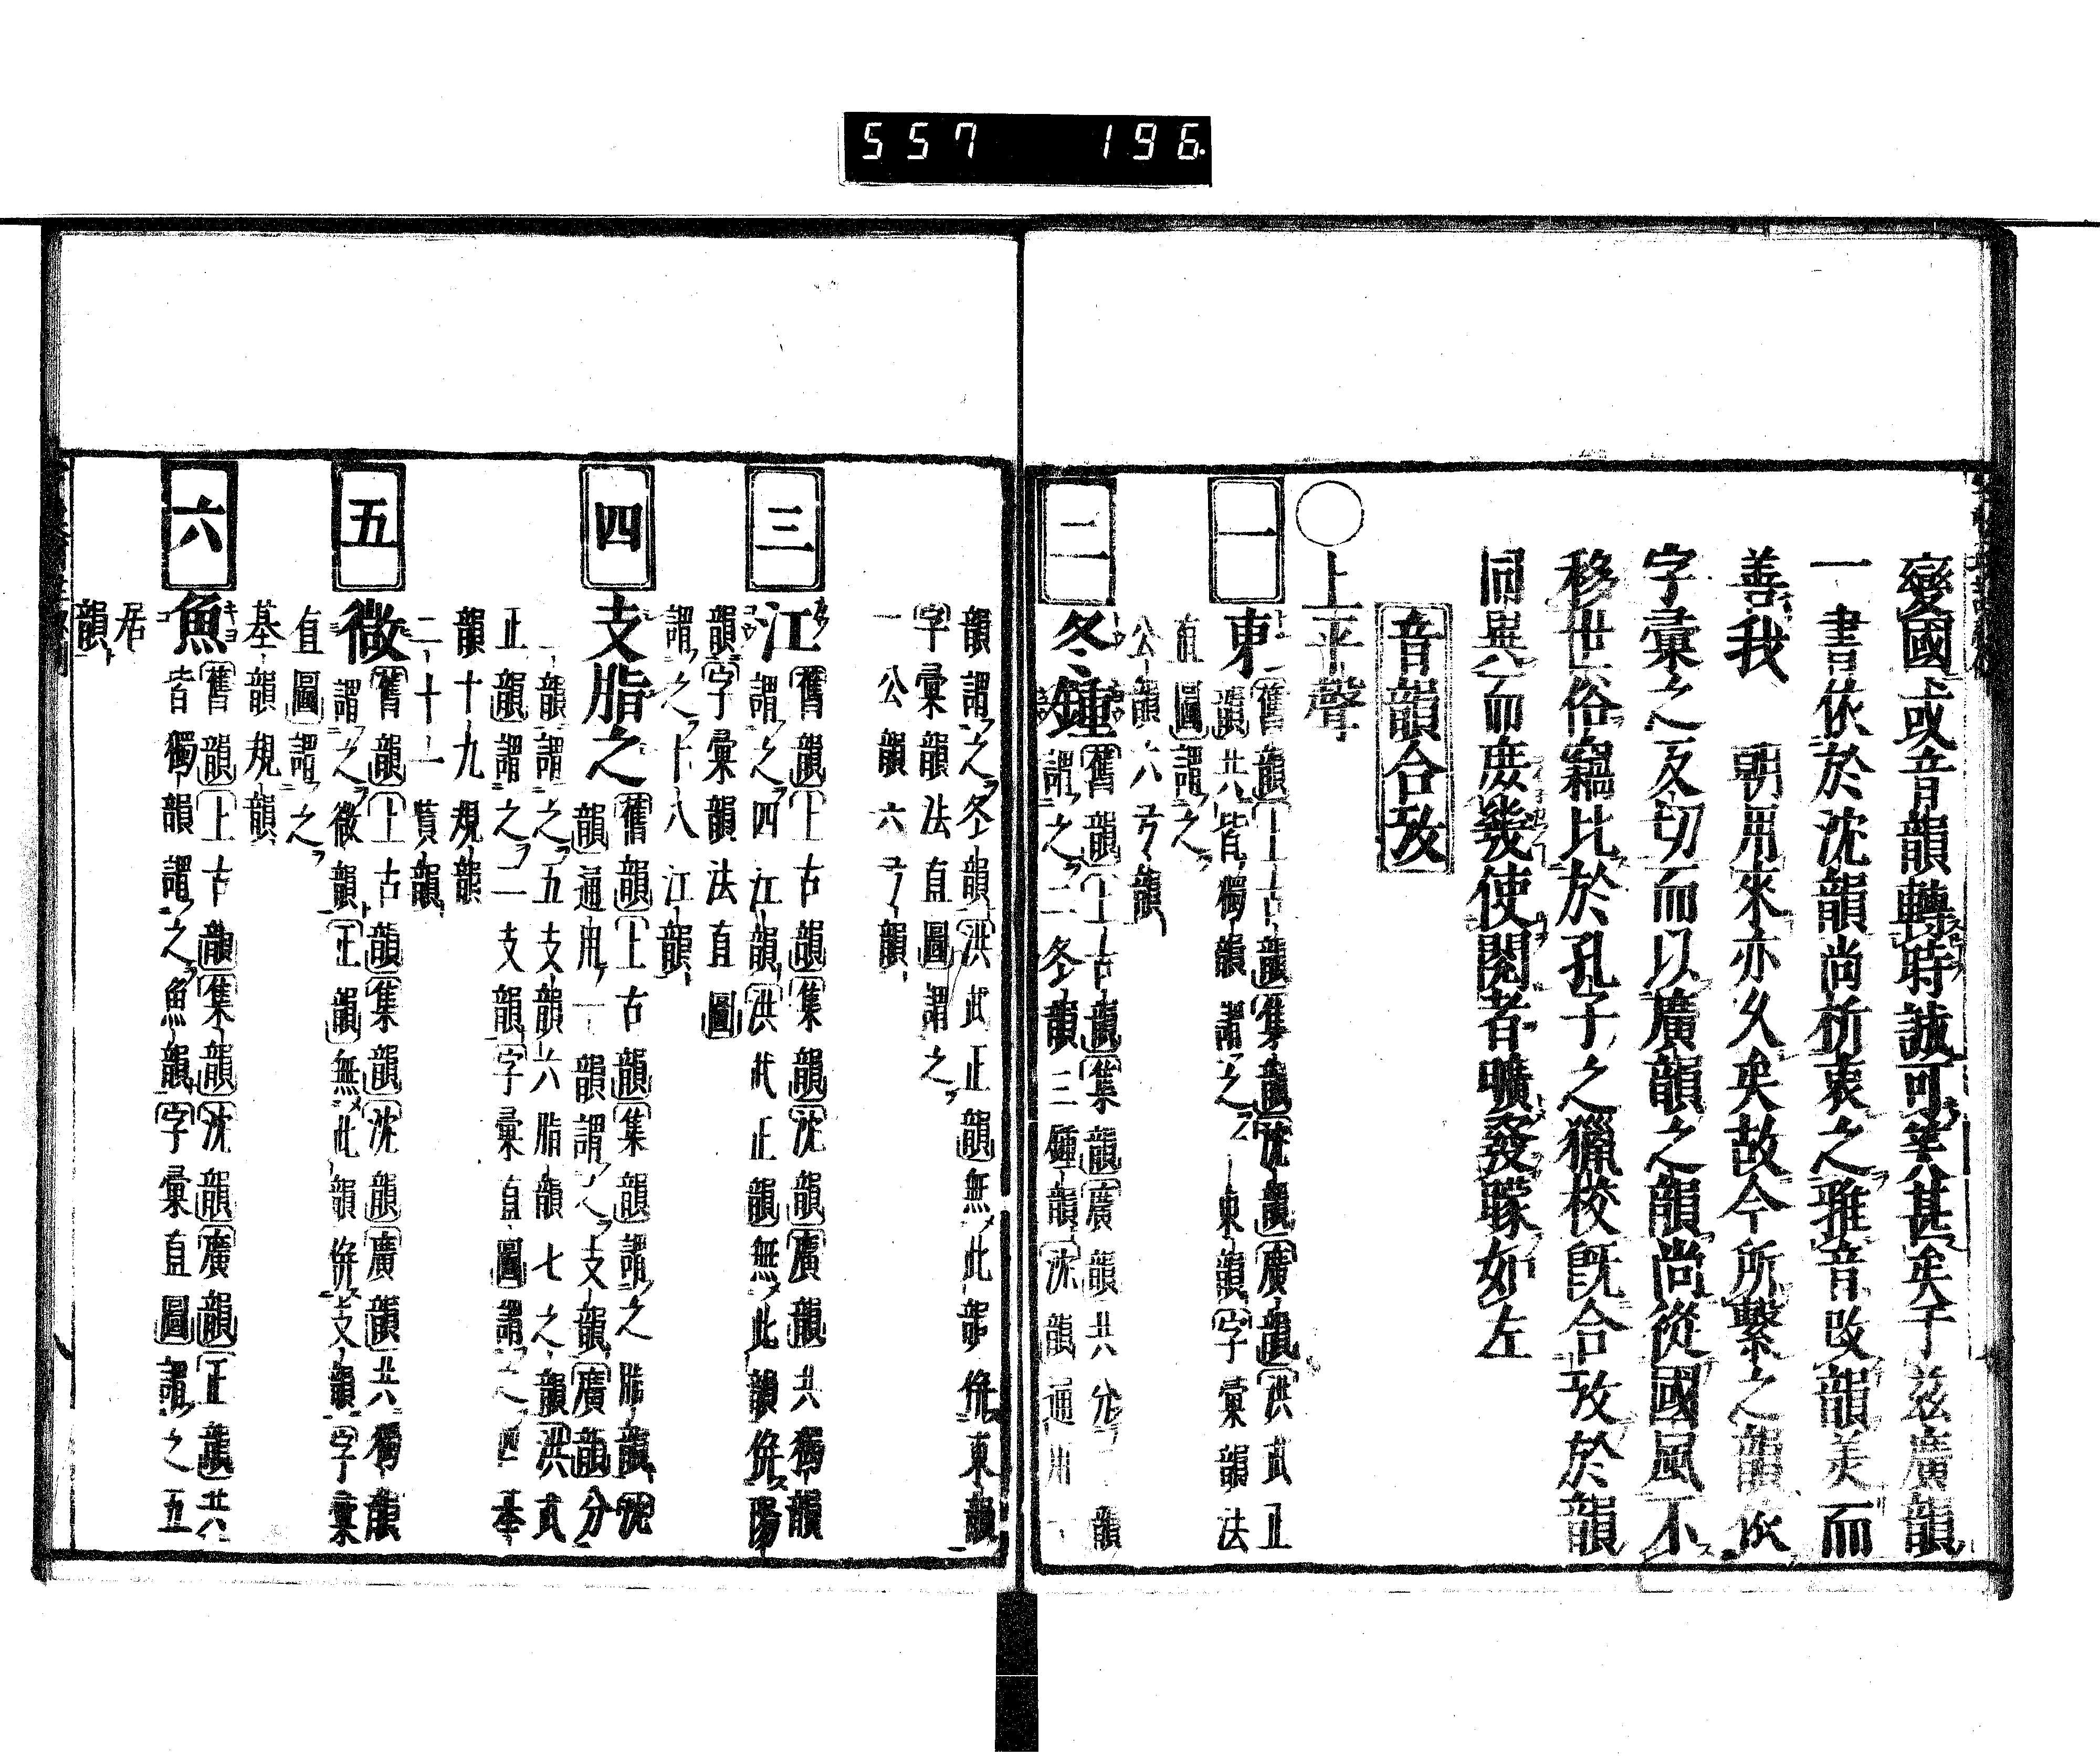 557 196
變國或音韻轉時誠可笑甚矣于茲廣韻
一書依於沈韻尚折衷之雅音改韻美而
善我 朝用來亦久矣故今所繫之韻依
字彙之反切而以廣韻之韻尚從國風不
移世俗竊比於孔子之獵校旣合攷於韻
同異而庶幾使閱者曠發矇如左
音韻合攷
○上平聲
一 東
舊韻上古韻集韻沈韻廣韻洪武正
韻共皆獨韻謂之一東韻字彙韻法
直圖謂之
公韻六弓韻
二 冬鍾
舊韻上古韻集韻廣韻共分二韻
謂之二冬韻三鍾韻沈韻通用一
韻謂之冬韻洪武正韻無此韻併東韻
字彙韻法直圖謂之
一公韻六弓韻
三 江
舊韻上古韻集韻沈韻廣韻共獨韻
謂之四江韻洪武正韻無此韻併陽
韻字彙韻法直圖
謂之十八江韻
四 支脂之
舊韻上古韻集韻謂之脂韻沈
韻通用一韻謂之支韻廣韻分
韻謂之五支韻六脂韻七之韻洪武
正韻謂之二支韻字彙直圖謂之四基
韻十九規韻
二十一貲韻
五 微
舊韻上古韻集韻沈韻廣韻共獨韻
謂之微韻正韻無此韻併支韻字彙
直圖謂之
基韻規韻
六 魚
舊韻上古韻集韻沈韻廣韻正韻共
皆獨韻謂之魚韻字彙直圖謂之五
居
韻